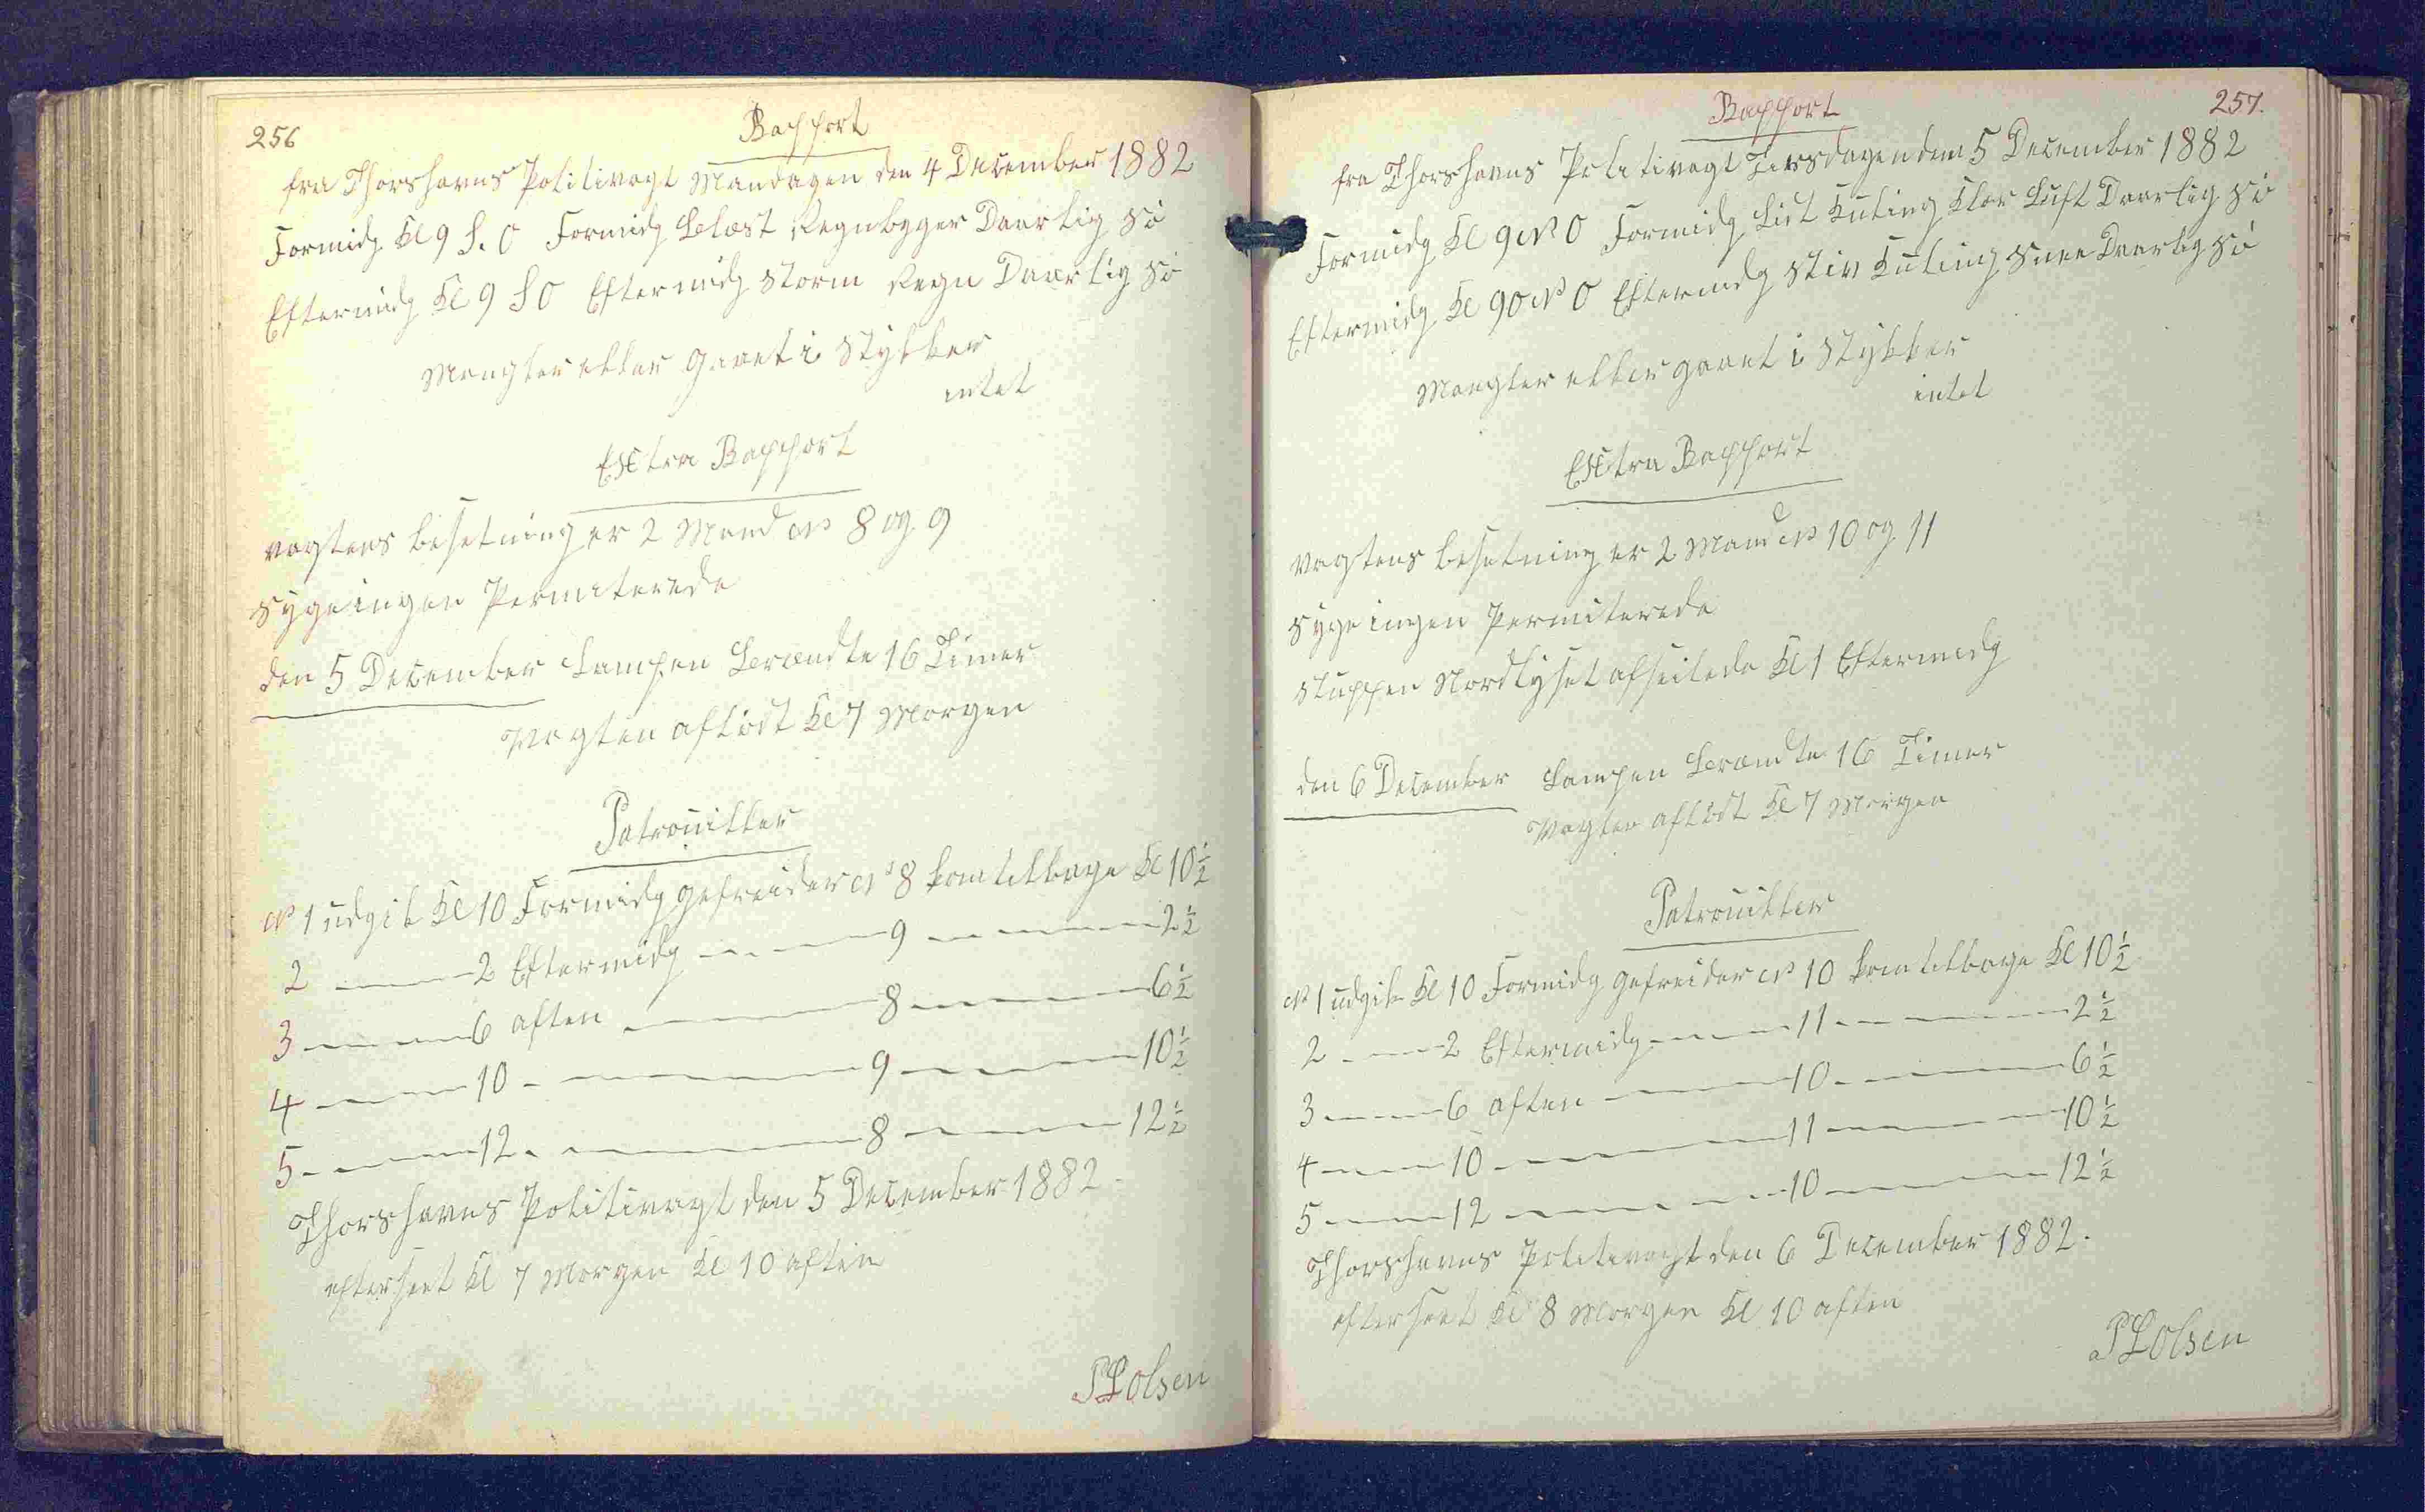 256
Rapport
fra Thorshavns Politivagt Mandagen den 4 December 1882
Formidg Kl 9 S. O Formidg Blæst Regnbyger Daarlig Sö
Eftermidg Kl 9 S O Eftermidg Storm Regn Daarlig Sö
Mangler eller Gaaet i Stykker
intet
Extra Rapport
Vagtens Besetning er 2 Mand No 8 og 9
Syge ingen Permiterede
den 5 December Lampen Brændte 16 Timer
Vagten aflöst Kl 7 Morgen
Patrouiller
No 1 udgik Kl 10 Formidg Gefreider No 8 kom tilbage Kl 10½
2 — 2 Eftermidg — 9 — 2½
3 — 6 aften — 8 — 6½
4 — 10 — 9 — 10½
5 — 12 — 8 — 12½
Thorshavns Politivagt den 5 December 1882.
efterseet Kl 7 Morgen Kl 10 aften
P L Olsen
257.
Rapport
fra Thorshavns Politivagt Tirsdagen den 5 December 1882
Formidg Kl 9 N O Formidg Lidt Kuling Klar Luft Daarlig Sö
Eftermidg Kl 9 O N O Eftermidg Stiv Kuling Snee Daarlig Sö
Mangler eller gaaet i Stykker
intet
Extra Rapport
Vagtens Besetning er 2 Mand No 10 og 11
Syge ingen Permiterede
Sluppen Nordlyset afseilede Kl 1 Eftermidg
den 6 December Lampen Brændte 16 Timer
Vagten aflöst Kl 7 Morgen
Patrouiller
No 1 udgik Kl 10 Formidg Gefreider No 10 kom tilbage Kl 10½
2 — 2 Eftermidg — 11 — 2½
3 — 6 aften — 10 — 6½
4 — 10 — 11 — 10½
5 — 12 — 10 — 12½
Thorshavns Politivagt den 6 December 1882.
efterseet Kl 8 Morgen Kl 10 aften
P L Olsen